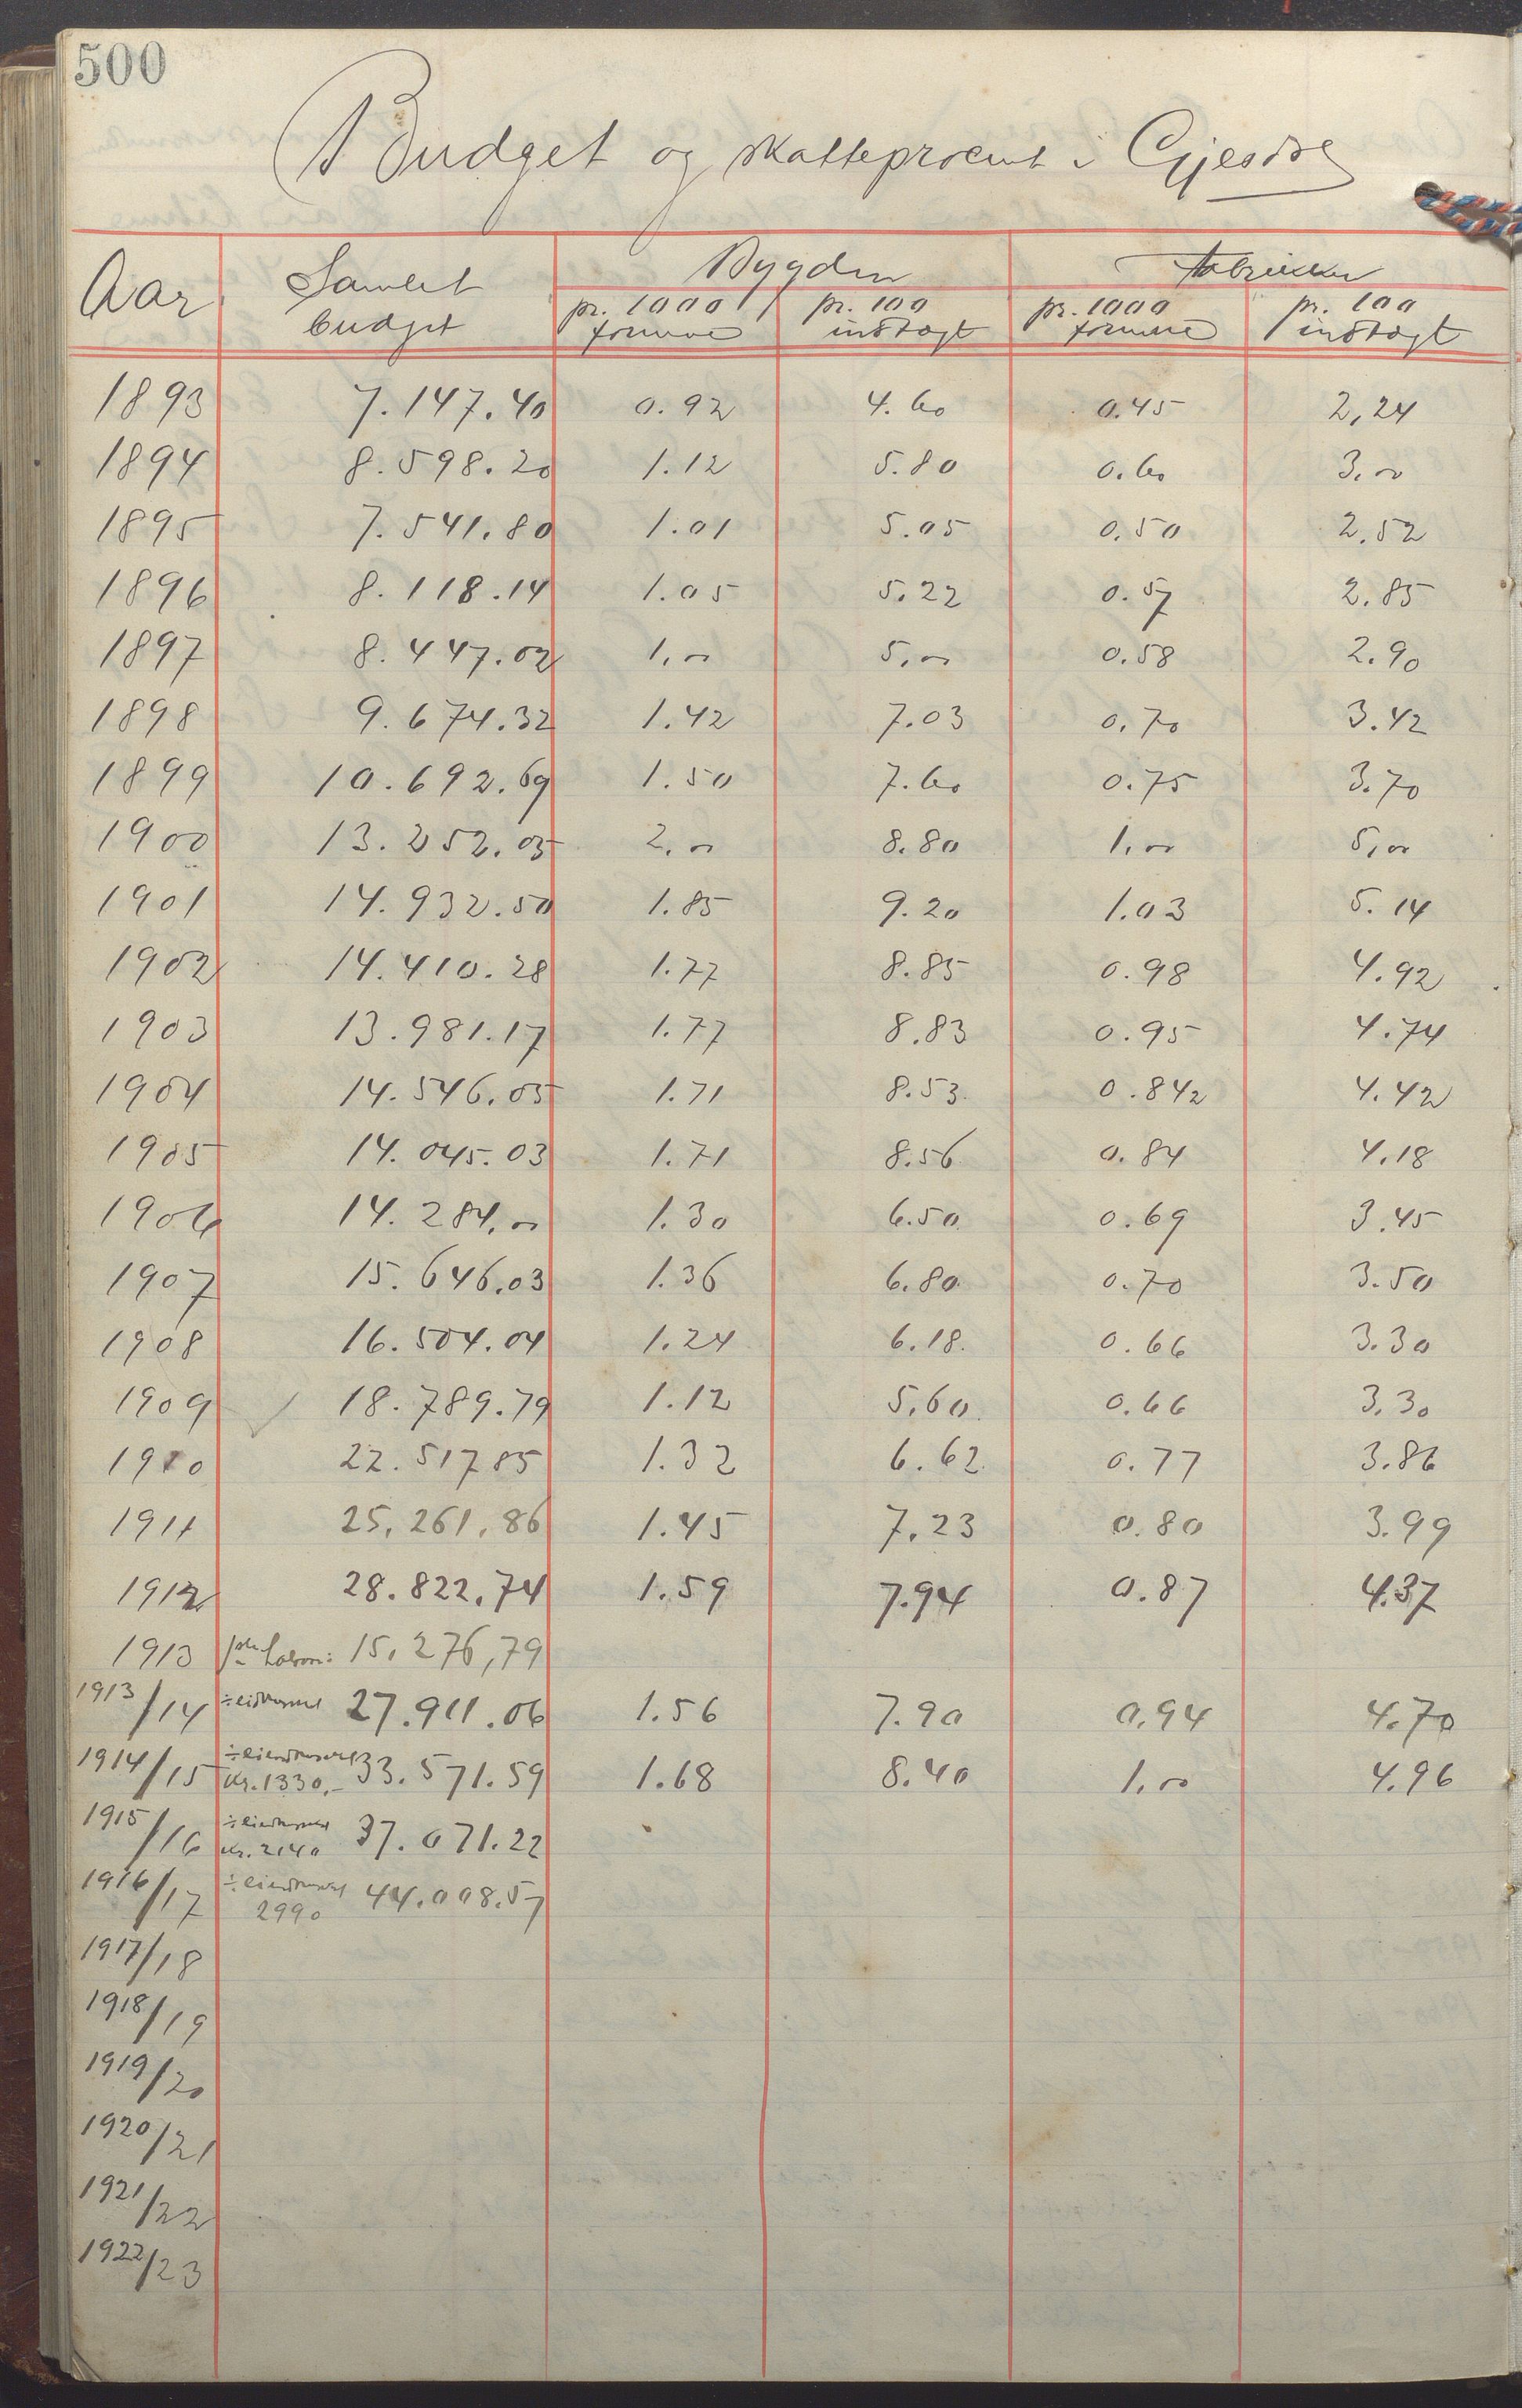 500
Budget og skatteprocent i Gjesdal
Aar Samlet budget Bygden Fabrikker
pr. 1000 formue pr. 100 indtægt pr. 1000 formue pr. 100 indtægt
1893 7.147.40 0.92 4.60 0.45 2,24
1894 8.598.20 1.12 5.80 0.60 3,00
1895 7.541.80 1.01 5.05 0.50 2.52
1896 8.118.14 1.05 5.22 0.57 2.85
1897 8.447.02 1,00 5,00 0.58 2.90
1898 9.674.32 1.42 7.03 0.70 3.42
1899 10.692.69 1.50 7.60 0.75 3.70
1900 13.252.05 2,00 8.80 1,00 5,00
1901 14.932.50 1.85 9.20 1.03 5.14
1902 14.410.28 1.77 8.85 0.98 4.92
1903 13.981.17 1.77 8.83 0.95 4.74
1904 14.546.05 1.71 8.53 0.842 4.42
1905 14.045.03 1.71 8.56 0.84 4.18
1906 14.284,00 1.30 6.50 0.69 3.45
1907 15.646.03 1.36 6.80 0.70 3.50
1908 16.504.04 1.24 6.18 0.66 3.30
1909 18.789.79 1.12 5,60 0.66 3,30
1910 22.517 85 1.32 6.62 0.77 3.86
1911 25,261,86 1.45 7,23 0.80 3.99
1912 28.822,74 1.59 7.94 0.87 4.37
1913 1ste halvaar: 15,276,79
1913/14 ÷ eidomsskat 27.911.06 1.56 7.90 0.94 4.70
1914/15 ÷ eiendomsskat kr. 1330,- 33.571.59 1.68 8.40 1,00 4.96
1915/16 ÷ eiendomsskat kr. 2140 37.071.22
1916/17 ÷ eiendomsskat 2990 44.008.57
1917/18
1918/19
1919/20
1920/21
1921/22
1922/23